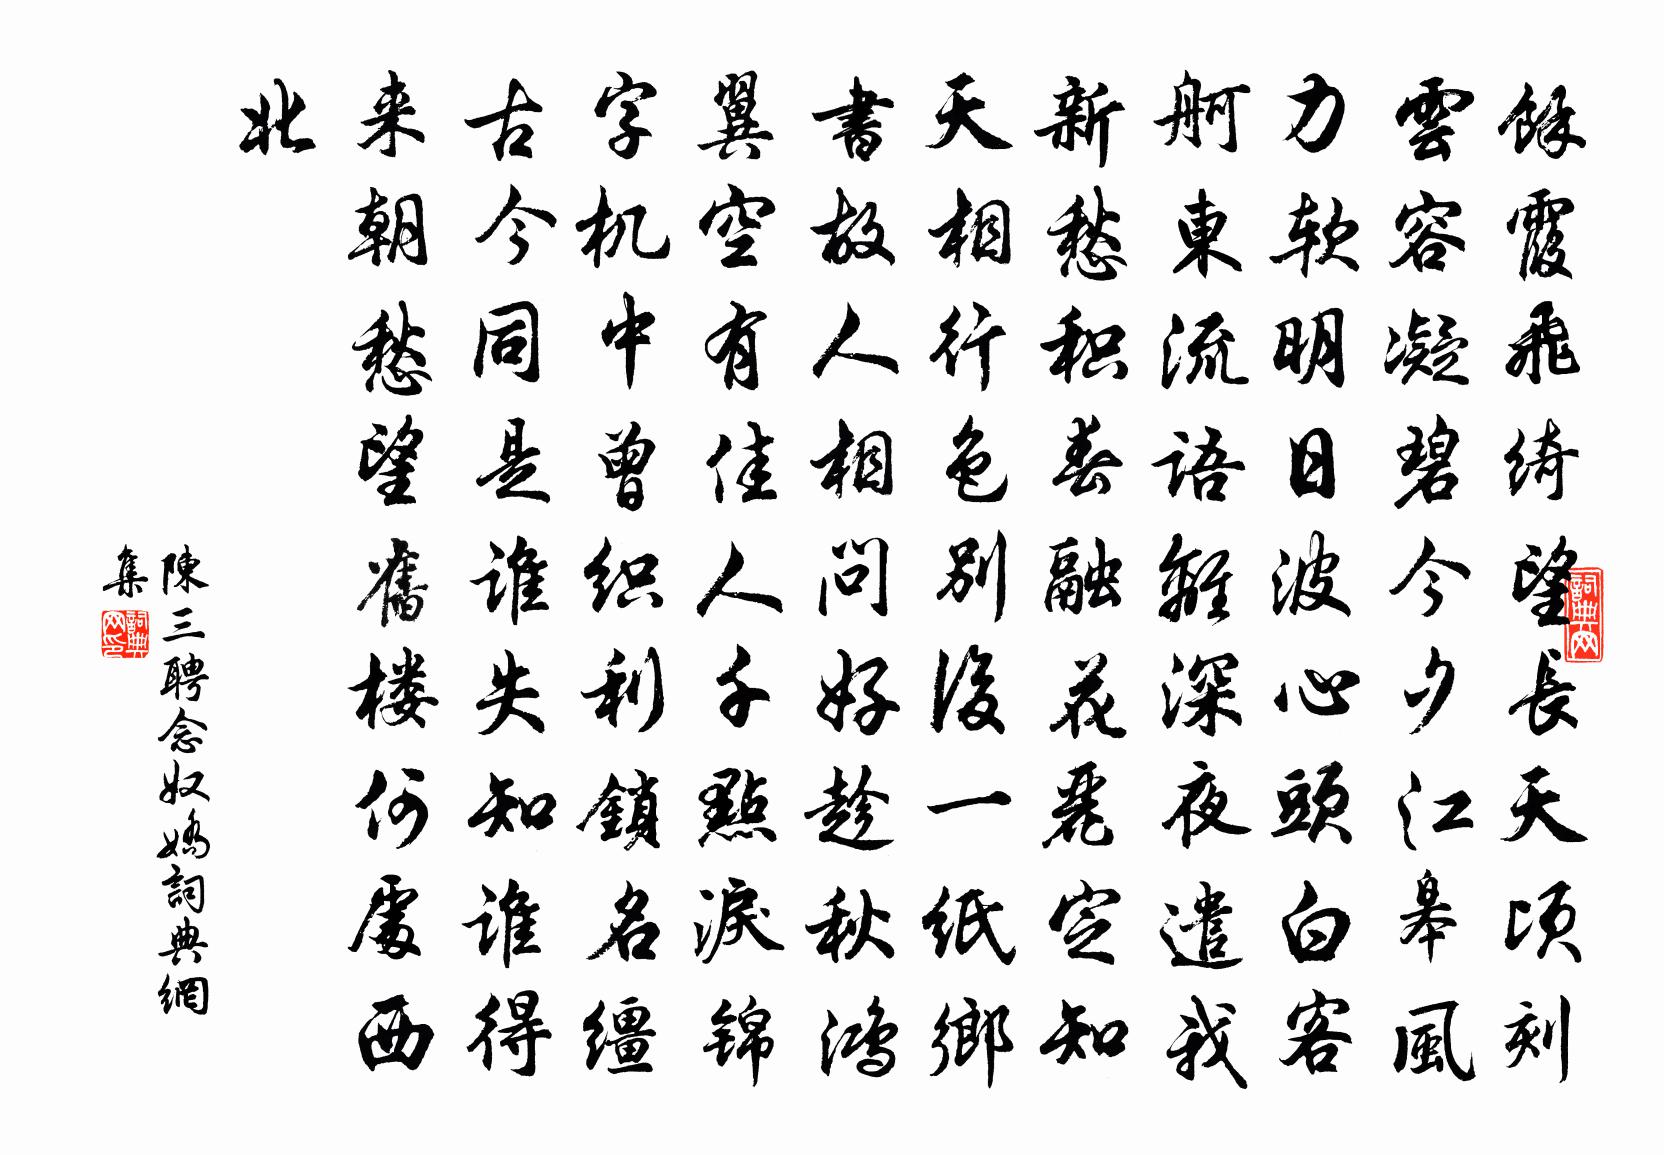 餘霞飛綺望長天頃刻
雲容凝碧今夕江皋風
力软明日波心頭白客
舸東流语離深夜遣我
新愁积春融花麗定知
天相行色別後一纸鄉
書故人相问好趁秋鸿
翼空有佳人千點淚锦
字机中曾织利鎖名缰
古今同是谁失知谁得
来朝愁望舊楼何處西
北
陳三聘念奴嬌詞典網
集
詞典网
詞典网印